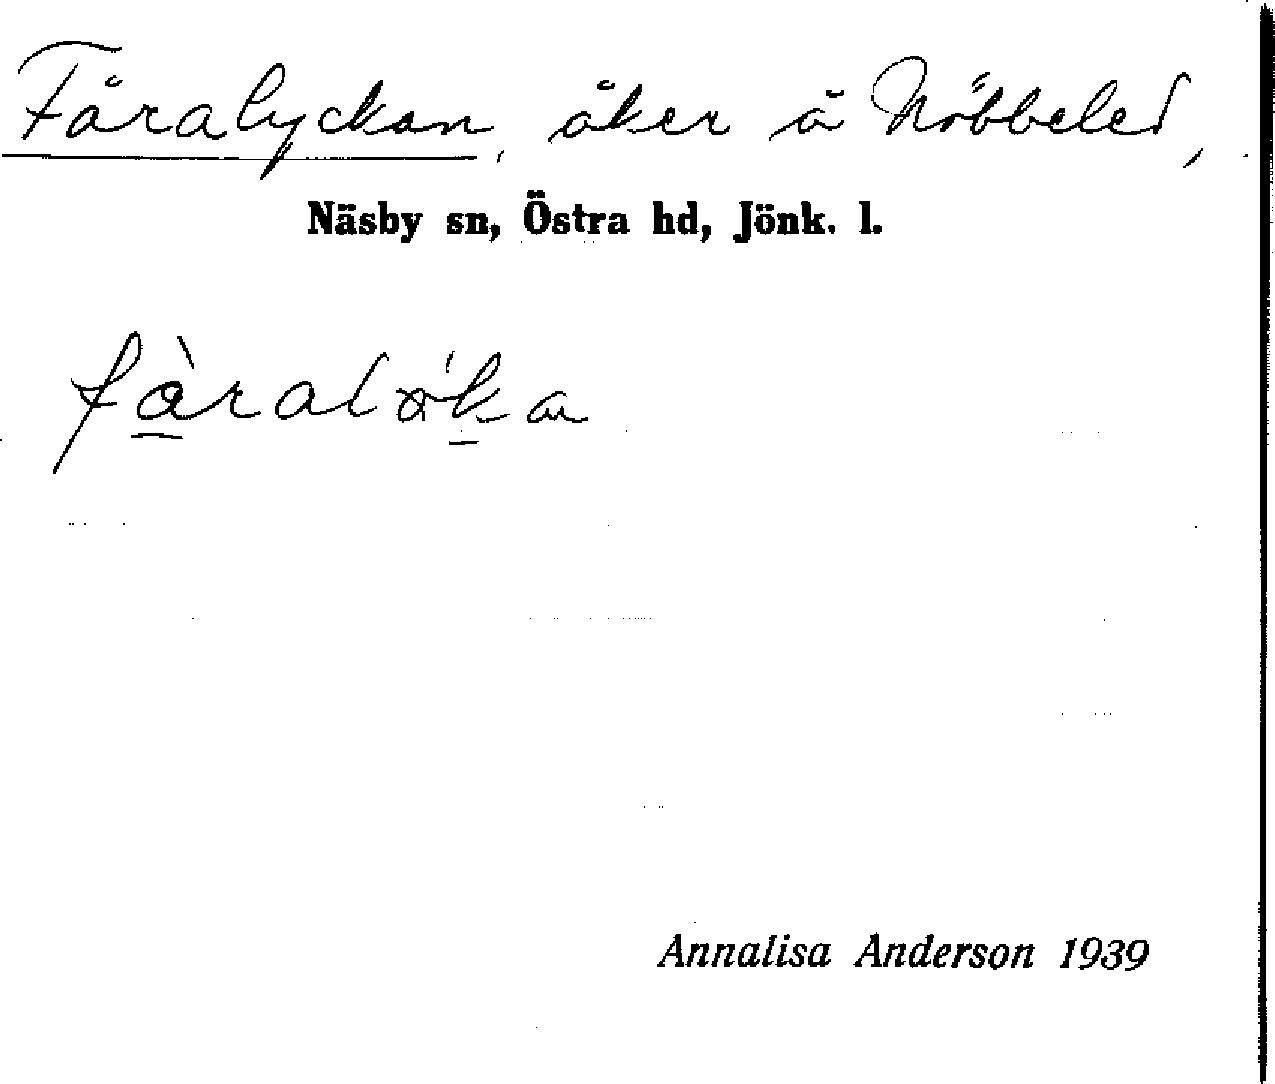 Fåralyckan, åker å Nöbbeled,
Näsby sn, Östra hd, Jönk. l.
Annalisa Anderson 1939